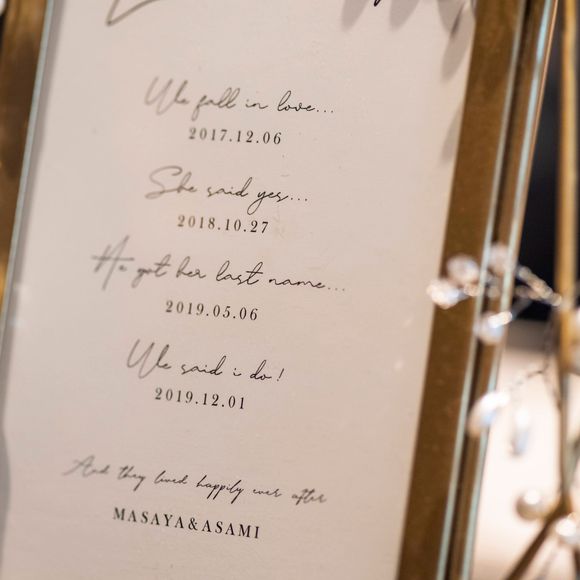 We fall in love...
2017.12.06
She said yes...
2018.10.27
He got her last name...
2019.05.06
We said i do!
2019.12.01
And they lived happily ever after
MASAYA&ASAMI